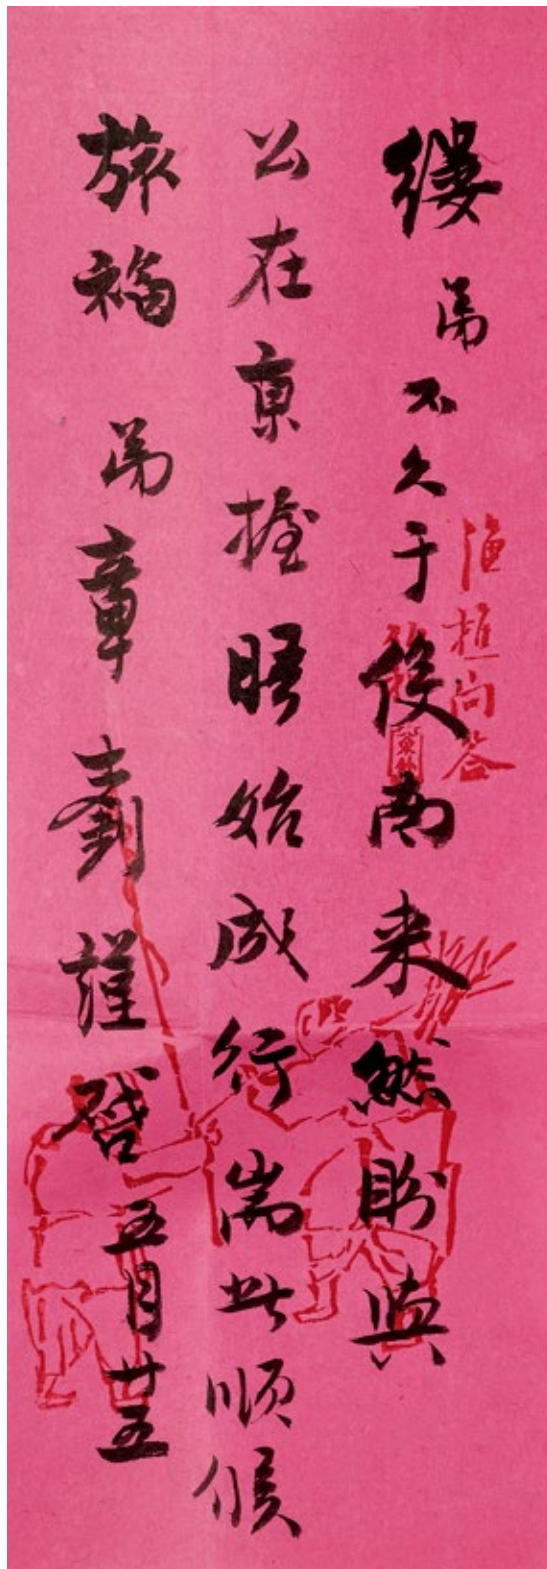 缕弟不久于役南来然盼與
公在京握晤始成行耑此順候
旅福 弟章劉謹啓五月廿五
漁樵问答